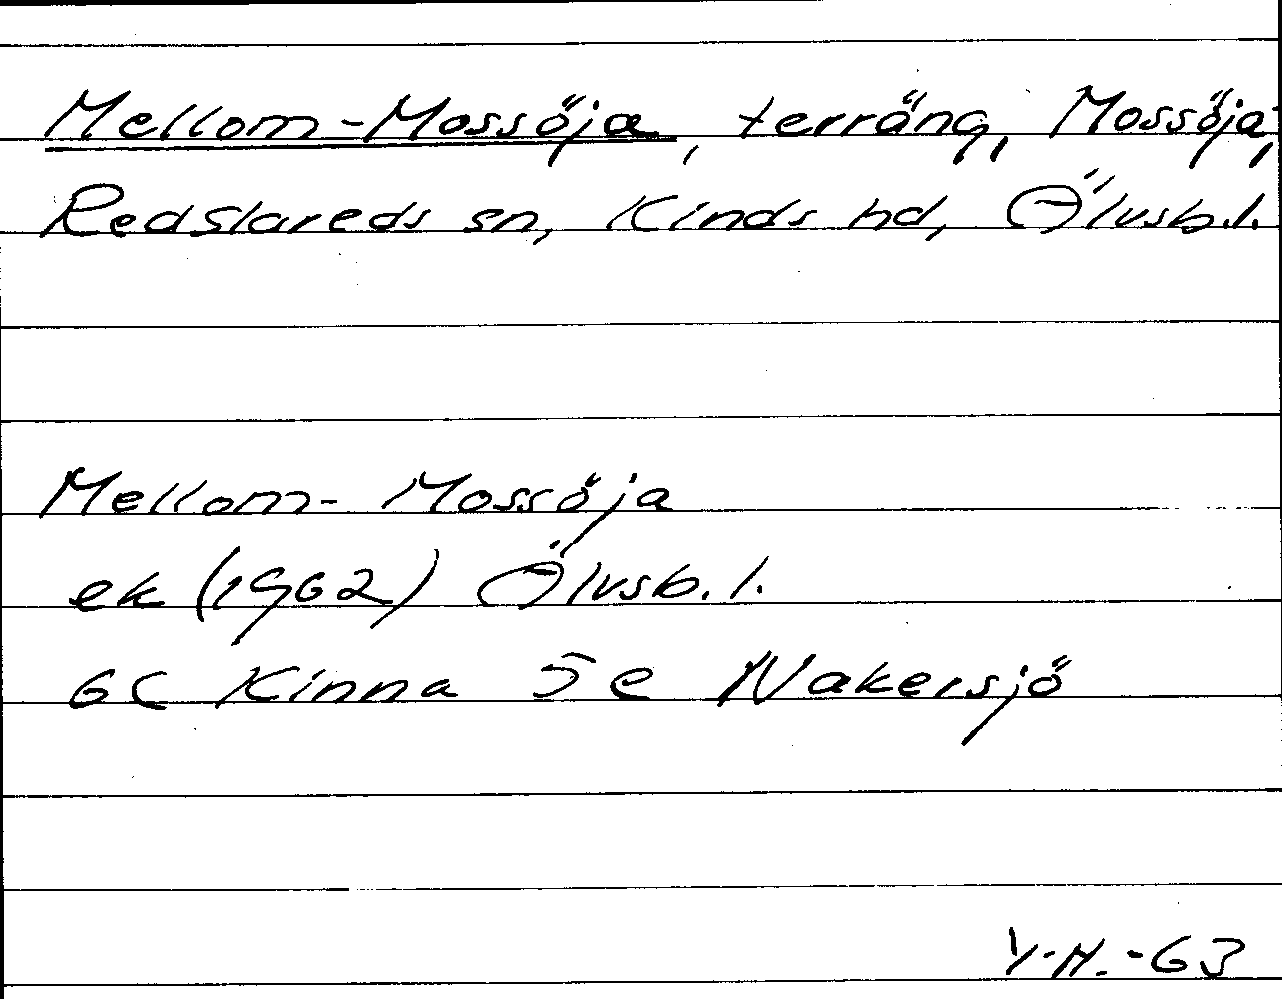 Mellom-Mossöja, terräng, Mossöja,
Redslareds sn, Kinds hd, Älvsb.l.
Mellom-Mossöja
ek (1962) Älvsb.l.
6C Kinna 5e Nakersjö
Y.H.-63